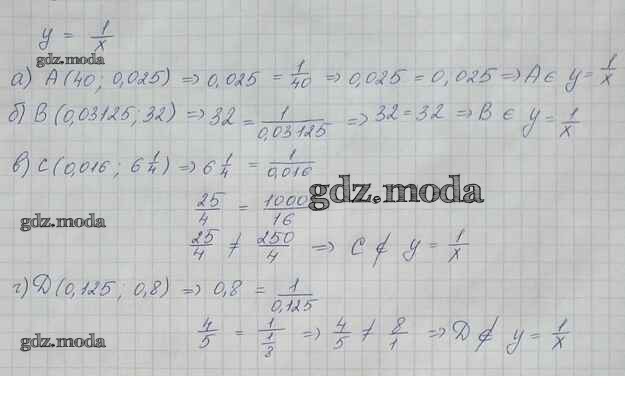 y = 1/x
gdz.moda
а) A (40; 0,025) ⇒ 0,025 = 1/40 ⇒ 0,025 = 0,025 ⇒ A ∈ y = 1/x
б) B (0,03125; 32) ⇒ 32 = 1/0,03125 ⇒ 32 = 32 ⇒ B ∈ y = 1/x
в) C (0,016; 6 1/4) ⇒ 6 1/4 = 1/0,016
gdz.moda
25/4 = 1000/16
gdz.moda
25/4 ≠ 250/4 ⇒ C ∉ y = 1/x
г) D (0,125; 0,8) ⇒ 0,8 = 1/0,125
4/5 = 1/(1/8) ⇒ 4/5 ≠ 8/1 ⇒ D ∉ y = 1/x
gdz.moda